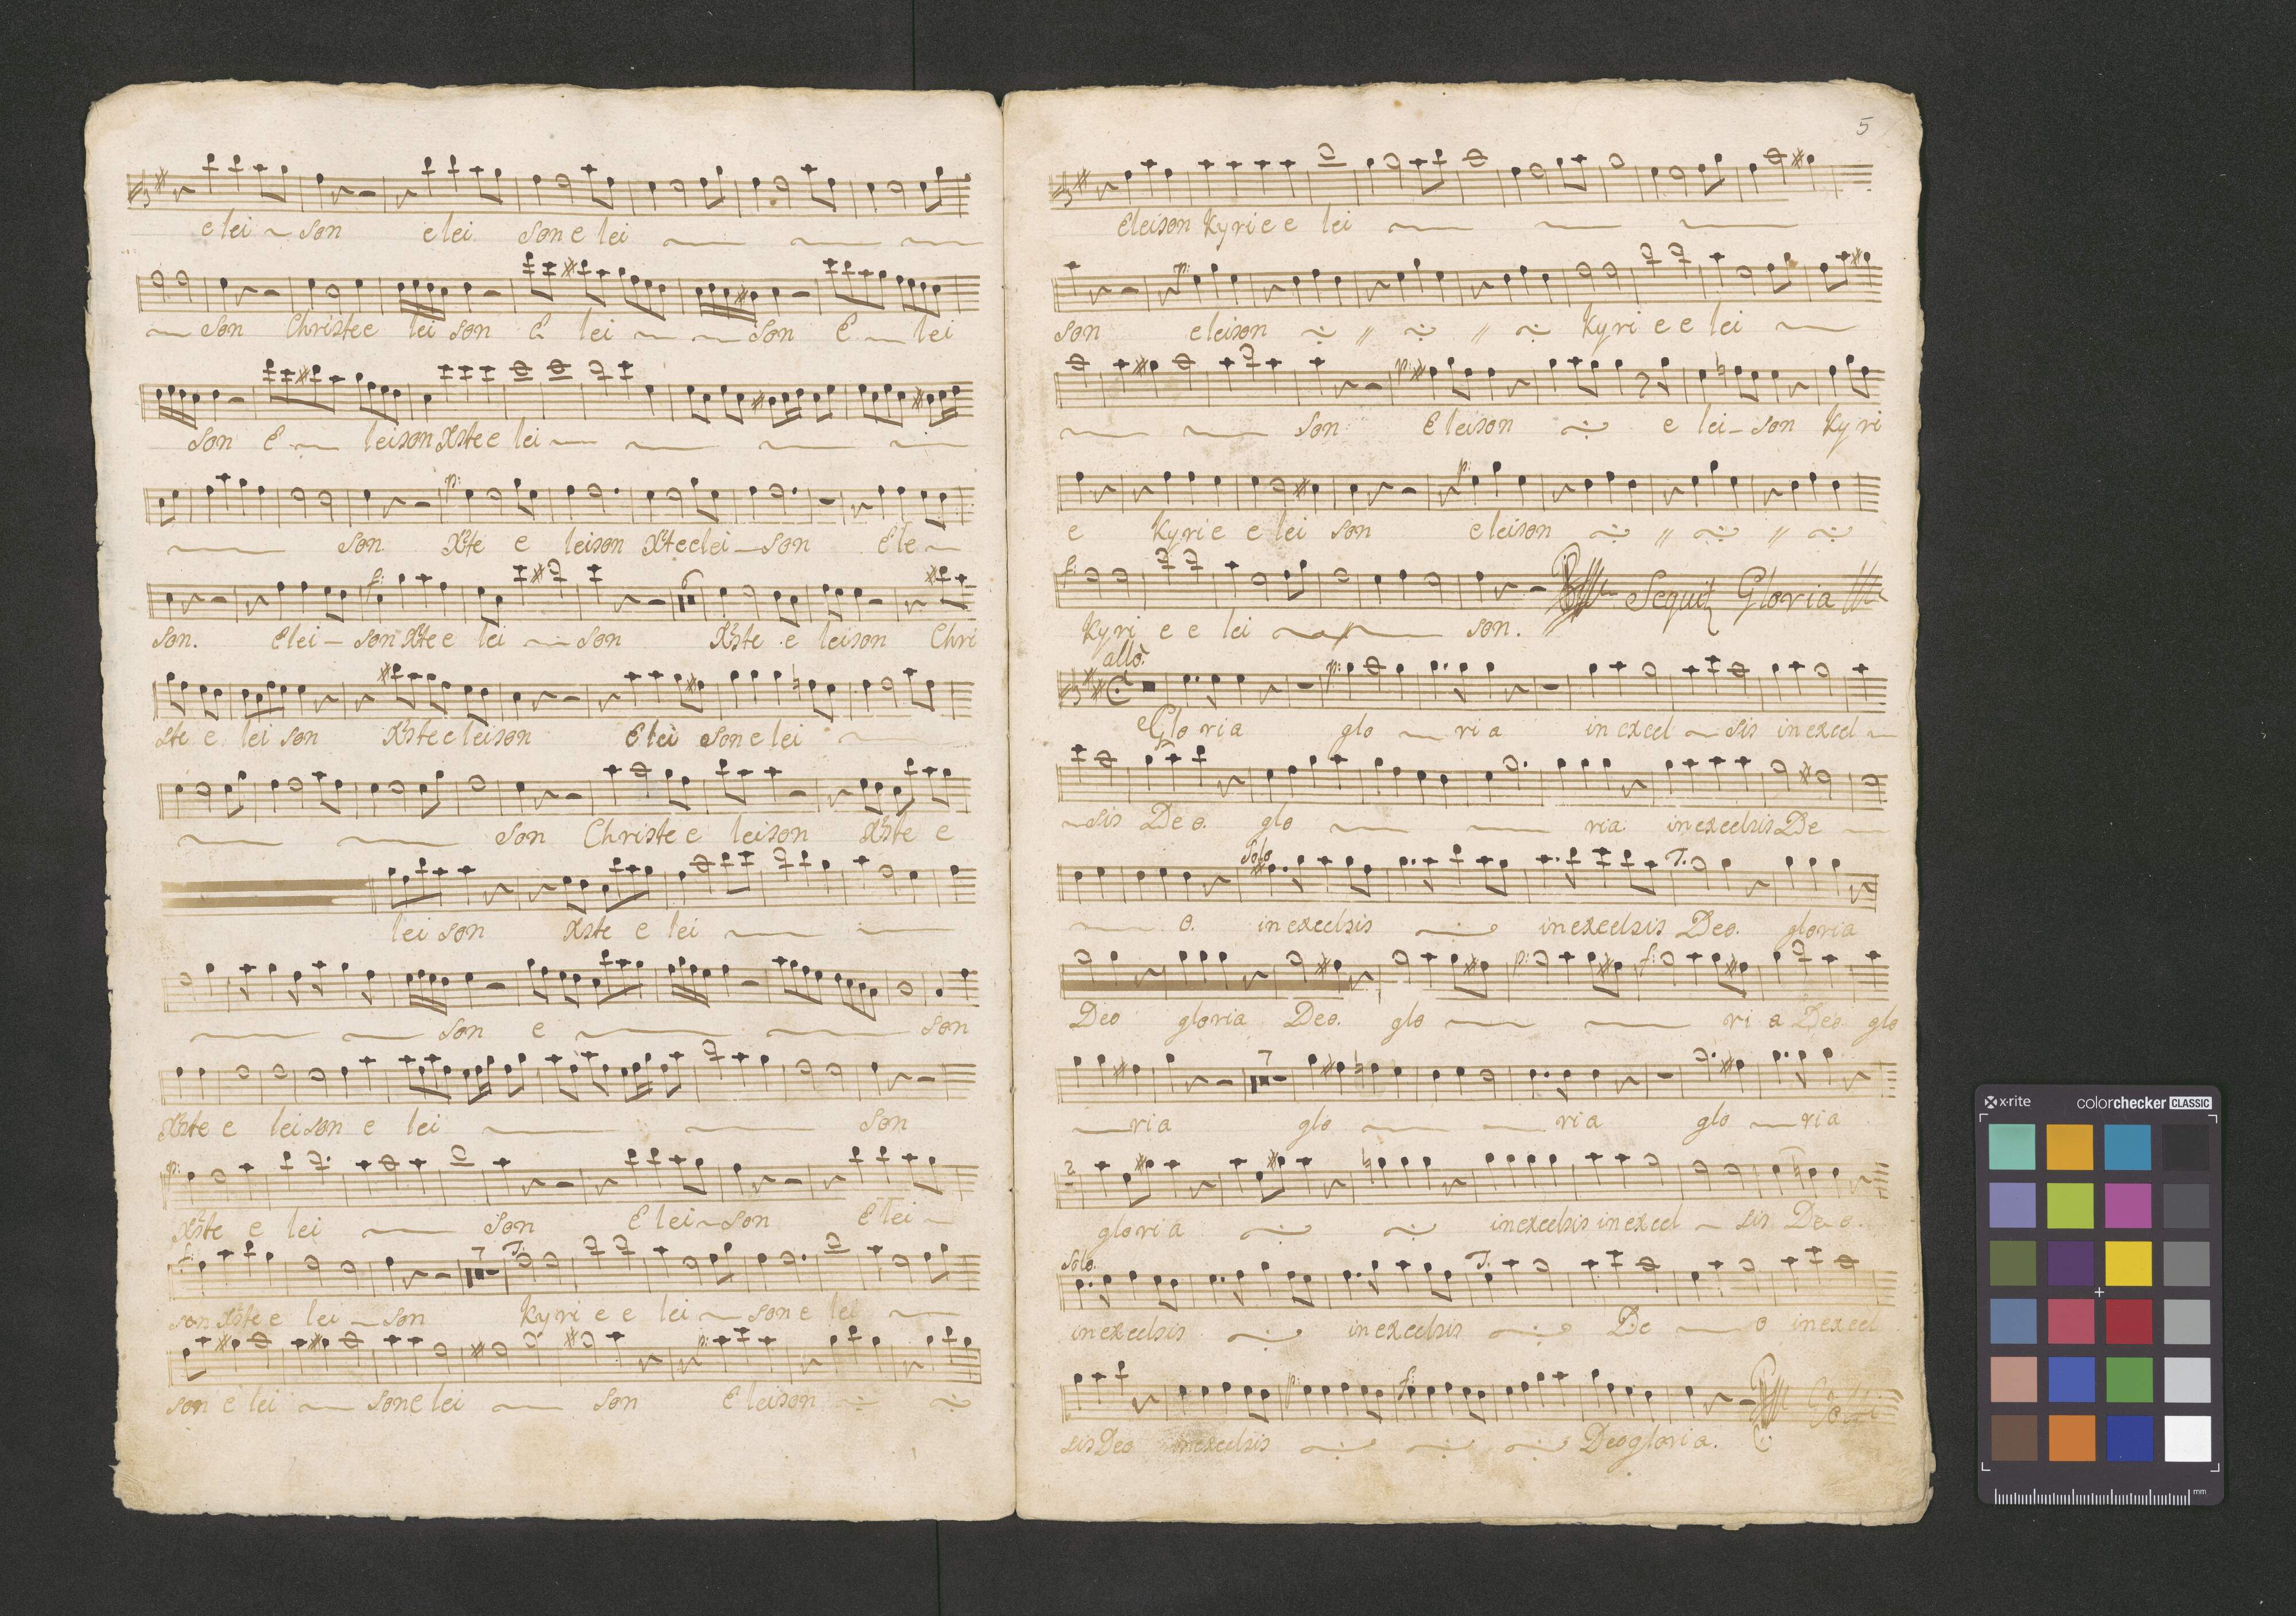 elei son elei son e lei
son Christe e lei son E lei son E lei
son E leison Xste e lei
son Xste e leison Xste elei son Ele
son. Elei son Xte e lei son Xste e leison Chri
ste e lei son Xste eleison Elei son e lei
son Christe e leison Xste e
lei son Xste e lei
son e son
Xste e leison e lei son
p:
Xste e lei son E lei son E lei
f: 7 T.
son Xste e lei son Kyri e e lei son e lei
p:
son e lei son e lei son E leison
5
Eleison Kyri e e lei
p:
son eleison Kyri e e lei
p:
son Eleison e lei son Kyri
p:
e Kyrie e lei son eleison
f: Sequit Gloria
Kyri e e lei son.
allo: p:
Gloria glo ria in excel sis in excel
sis Deo. glo ria in excelsis De
Solo T.
o. in excelsis in excelsis Deo. gloria
p: f:
Deo gloria Deo. glo ri a Deo glo
7
ria glo ria glo ria
2
gloria in excelsis in excel sis De o.
Solo. T.
in excelsis in excelsis De o in excel
p: f:
sis Deo in excelsis Deo gloria.
x-rite colorchecker CLASSIC
mm